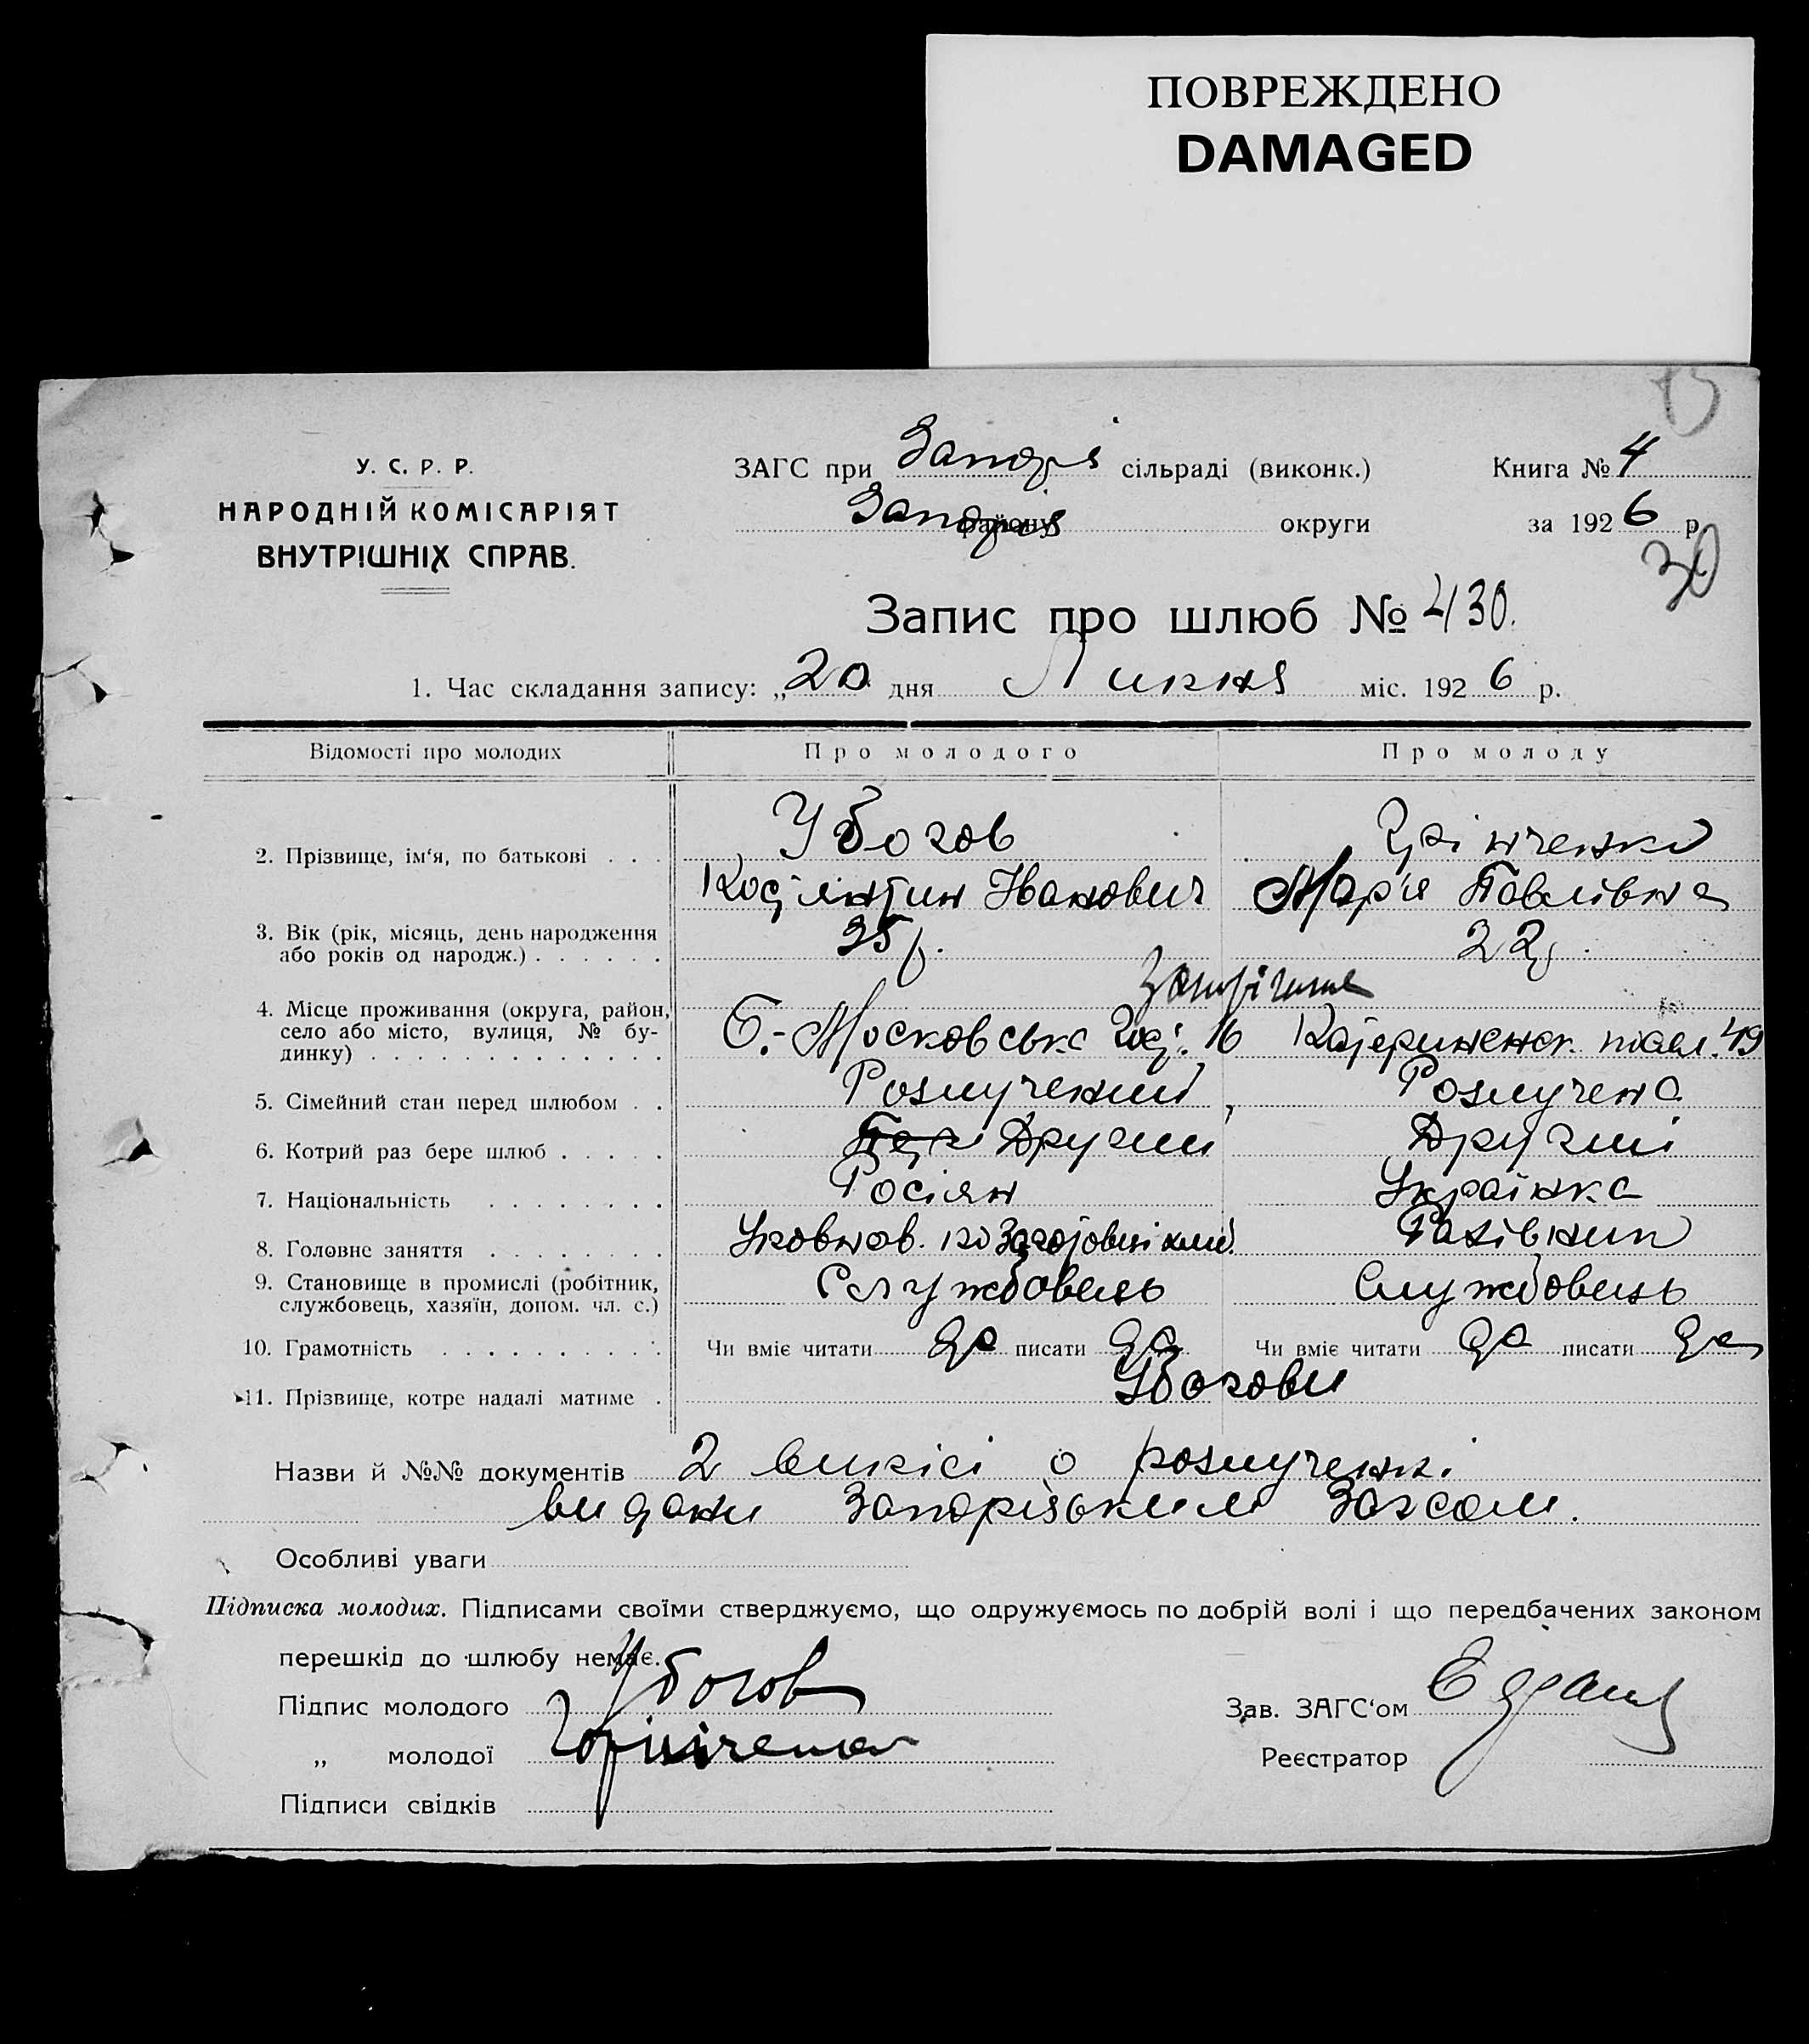 ПОВРЕЖДЕНО
DAMAGED
У. С. Р. Р.
НАРОДНІЙ КОМІСАРІЯТ
ВНУТРІШНІХ СПРАВ.
ЗАГС при Запорі сільраді (виконк.) Книга № 4
району округи за 1926 р.
30
Запис про шлюб № 430.
1. Час складання запису: „20 дня Липня міс. 1926 р.
Відомості про молодих Про молодого Про молоду
2. Прізвище, ім'я, по батькові . . . Убогов Грінченко
Костянтин Иванович Мар'я Павлівна
3. Вік (рік, місяць, день народження
або років од народж.) . . . . . . 35 р. 22 р.
4. Місце проживання (округа, район,
село або місто, вулиця, № бу-
динку) . . . . . . . . . . . . . Запоріжжя
Б.-Московська 16 49
5. Сімейний стан перед шлюбом . . Розлучений Розлучена
6. Котрий раз бере шлюб . . . . . Другий Другий
7. Національність . . . . . . . . Росіян Українка
8. Головне заняття . . . . . . . .
9. Становище в промислі (робітник,
службовець, хазяїн, допом. чл. с.) Службовець Службовець
10. Грамотність . . . . . . . . . . Чи вміє читати да писати да Чи вміє читати да писати да
11. Прізвище, котре надалі матиме . Убогови
Назви й №№ документів 2 виписі о розлученні
видани Запорізьким Загсом.
Особливі уваги
Підписка молодих. Підписами своїми стверджуємо, що одружуємось по добрій волі і що передбачених законом
перешкід до шлюбу немає.
Підпис молодого Убогов Зав. ЗАГС'ом
„ молодої Грінченко Реєстратор
Підписи свідків